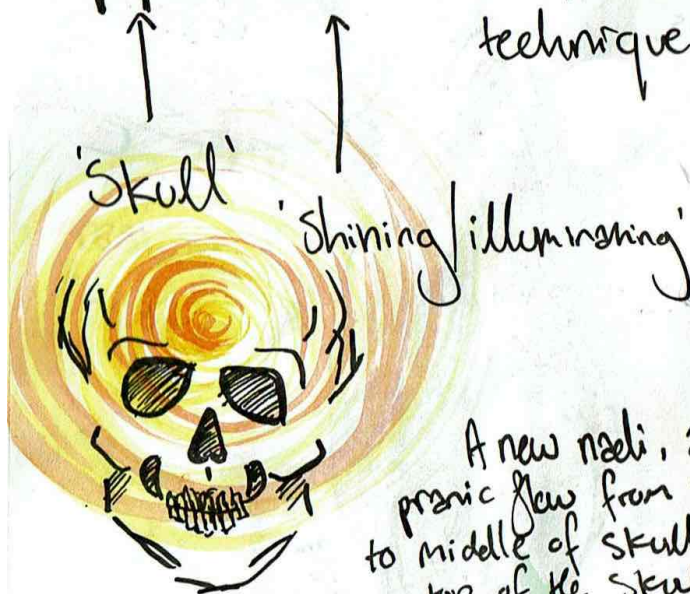 technique
'Skull'
'Shining/illuminating'
A new nadi,
pranic flow from
to middle of skull
top of the Sku